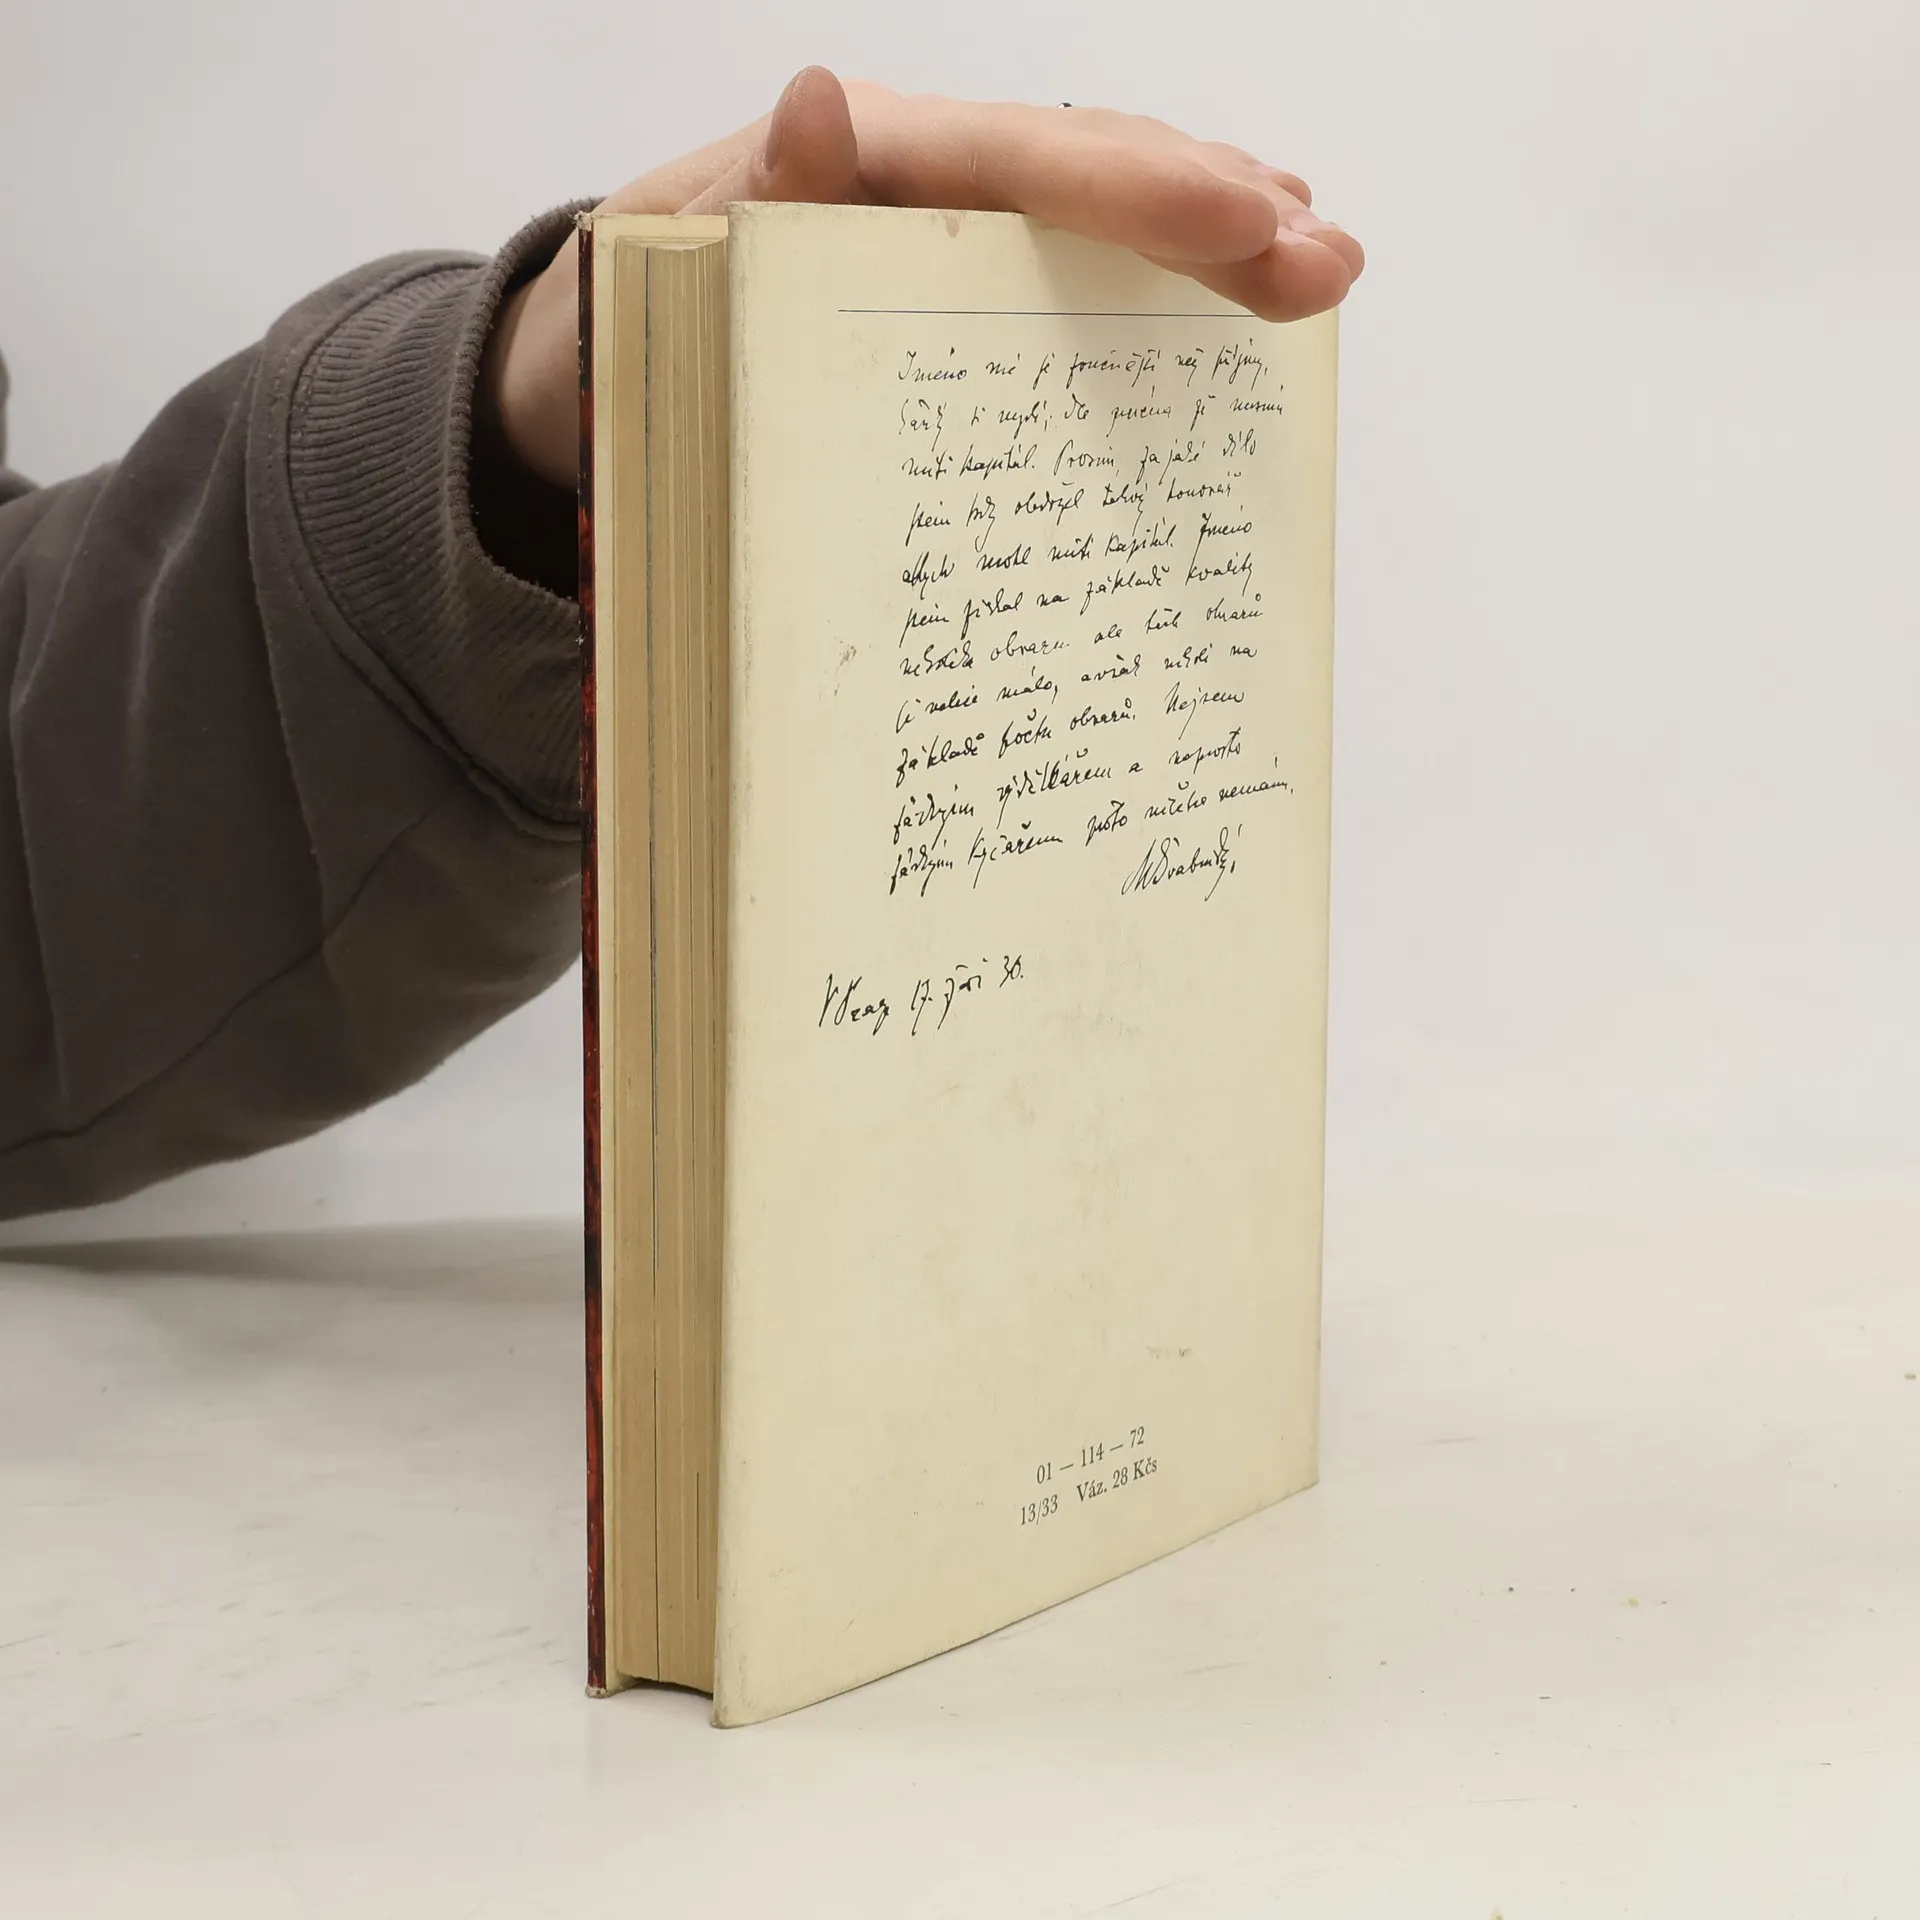 Jméno mé je zvučnější než příjmy,
každý ti myslí, dle jména že musím
míti kapitál. Prosím, za jaké dílo
jsem kdy obdržel takový honorář
abych mohl míti kapitál. Jméno
jsem získal na základě kvality
několika obrazu ale těch obrazů
je velice málo, avšak nikoli na
základě počtu obrazů. Nejsem
žádným výdělkářem a naprosto
žádným kýčařem proto ničeho nemám.
MŠvabinský,
V Praze 17. září 30.
01 — 114 — 72
13/33 Váz. 28 Kčs